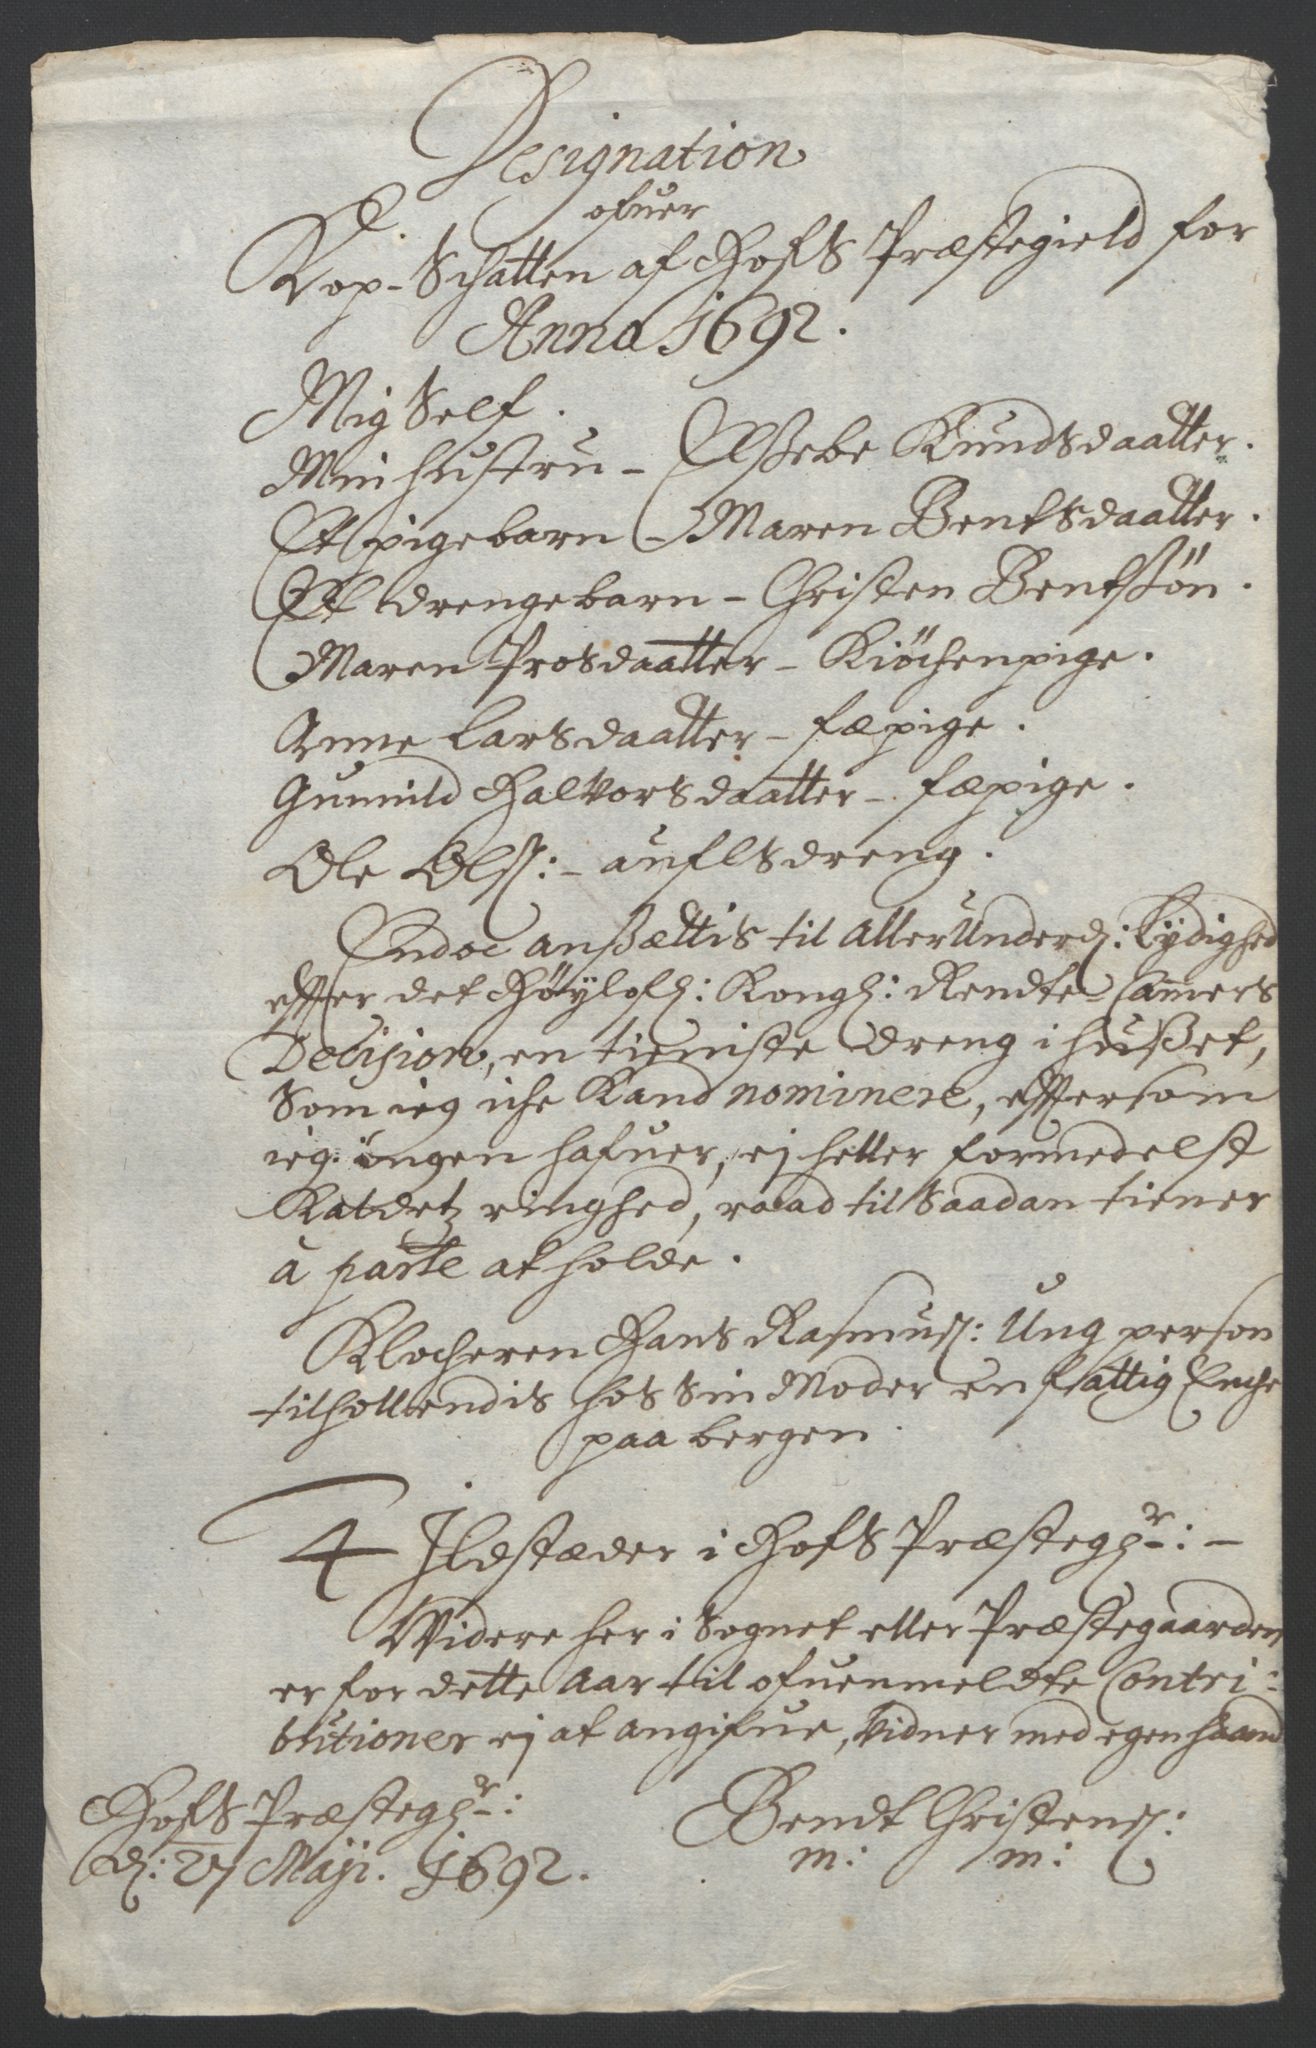 Designation
ofuer
Kop-Schatten af Hofs Præstegield for
Anno 1692.
Mig Self.
Min hustru - Elssebe Knudsdaatter.
Et pigebarn - Maren Bentsdaatter.
Et drengebarn - Christen Bentssøn.
Maren Prosdaatter - Kiöchenpige.
Anne Larsdaatter - fæpige.
Gunnild Halvorsdaatter - fæpige.
Ole Olss: - auflsdreng.
Endoc anssættis til allerUnderd: Lydighed
effter det Höylofl: Kongl: Rendte-Camers
Decision, en tieniste dreng i husset,
Som ieg iche Kand nominere, efftersom
ieg ingen hafuer, ej heller formedelst
Kaldetz ringhed, raad til Saadan tiener
à parte at holde.
Klocheren Hans Rasmuss: Ung person
tilholdendis hos Sin Moder en fattig Enche
paa bergen.
4 Ildstæder i Hofs Præstegr: -
Widere her i Sognet eller Præstegaarden
er for dette Aar til ofuenmeldte Contri:
butioner ej at angifue, Vidner med egen haand
Hofs Præstegr:
d: 27 Maji. 1692.
Bendt Christens:
m: m: